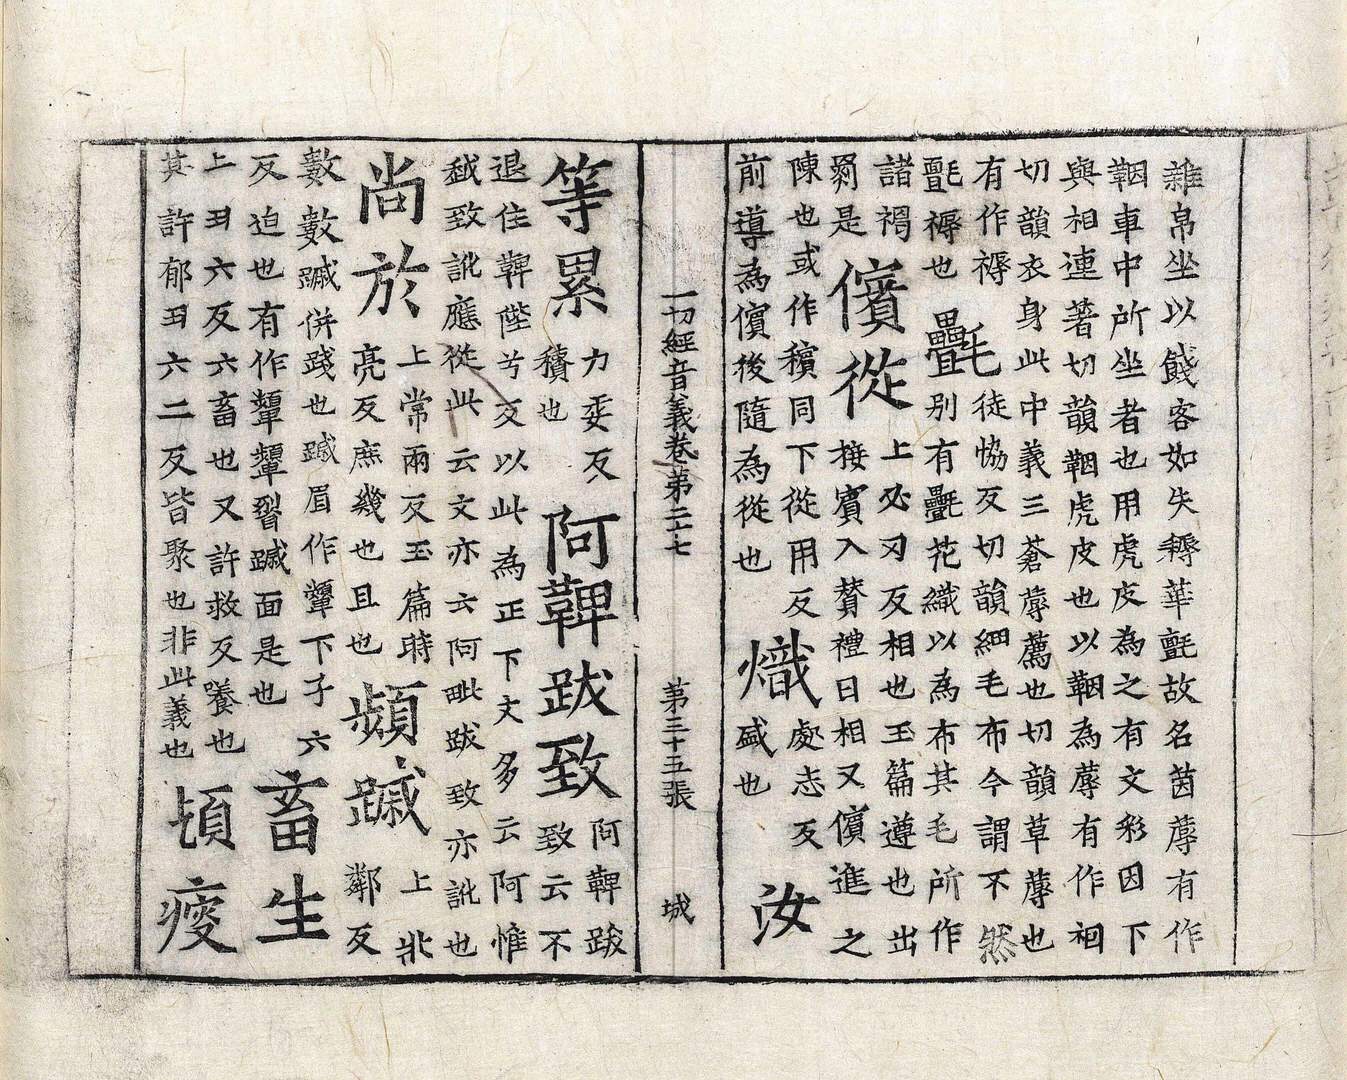 雜帛坐以餞客如失耨華氈故名茵蓐有作
鞇車中所坐者也用虎皮為之有文彩因下
與相連著切韻鞇虎皮也以鞇為蓐有作裀
切韻衣身此中義三蒼蓐薦也切韻草蓐也
有作褥
氎褥也
氎
徒恊反切韻細毛布今謂不然
别有氎花織以為布其毛所作
諸禂
芻是
儐從
上必刃反相也玉篇遵也出
接賓入賛禮曰相又儐進之
陳也或作穦同下從用反
前導為儐後隨為從也
熾
處志反
盛也
汝
一切經音義卷第二十七 第三十五張 城
等累
力委反
積也
阿鞞跋致
阿鞞跋
致云不
退住鞞陛兮反以此為正下文多云阿惟
越致訛應從此云文亦云阿毗跋致亦訛也
尚於
上常兩反玉篇時
亮反庶幾也且也
頻蹙
上毗
鄰反
數數蹴併踐也蹙眉作顰下子六
反迫也有作顰顰習蹙面是也
畜生
上丑六反六畜也又許救反養也
其許郁丑六二反皆聚也非此義也
頓㾭